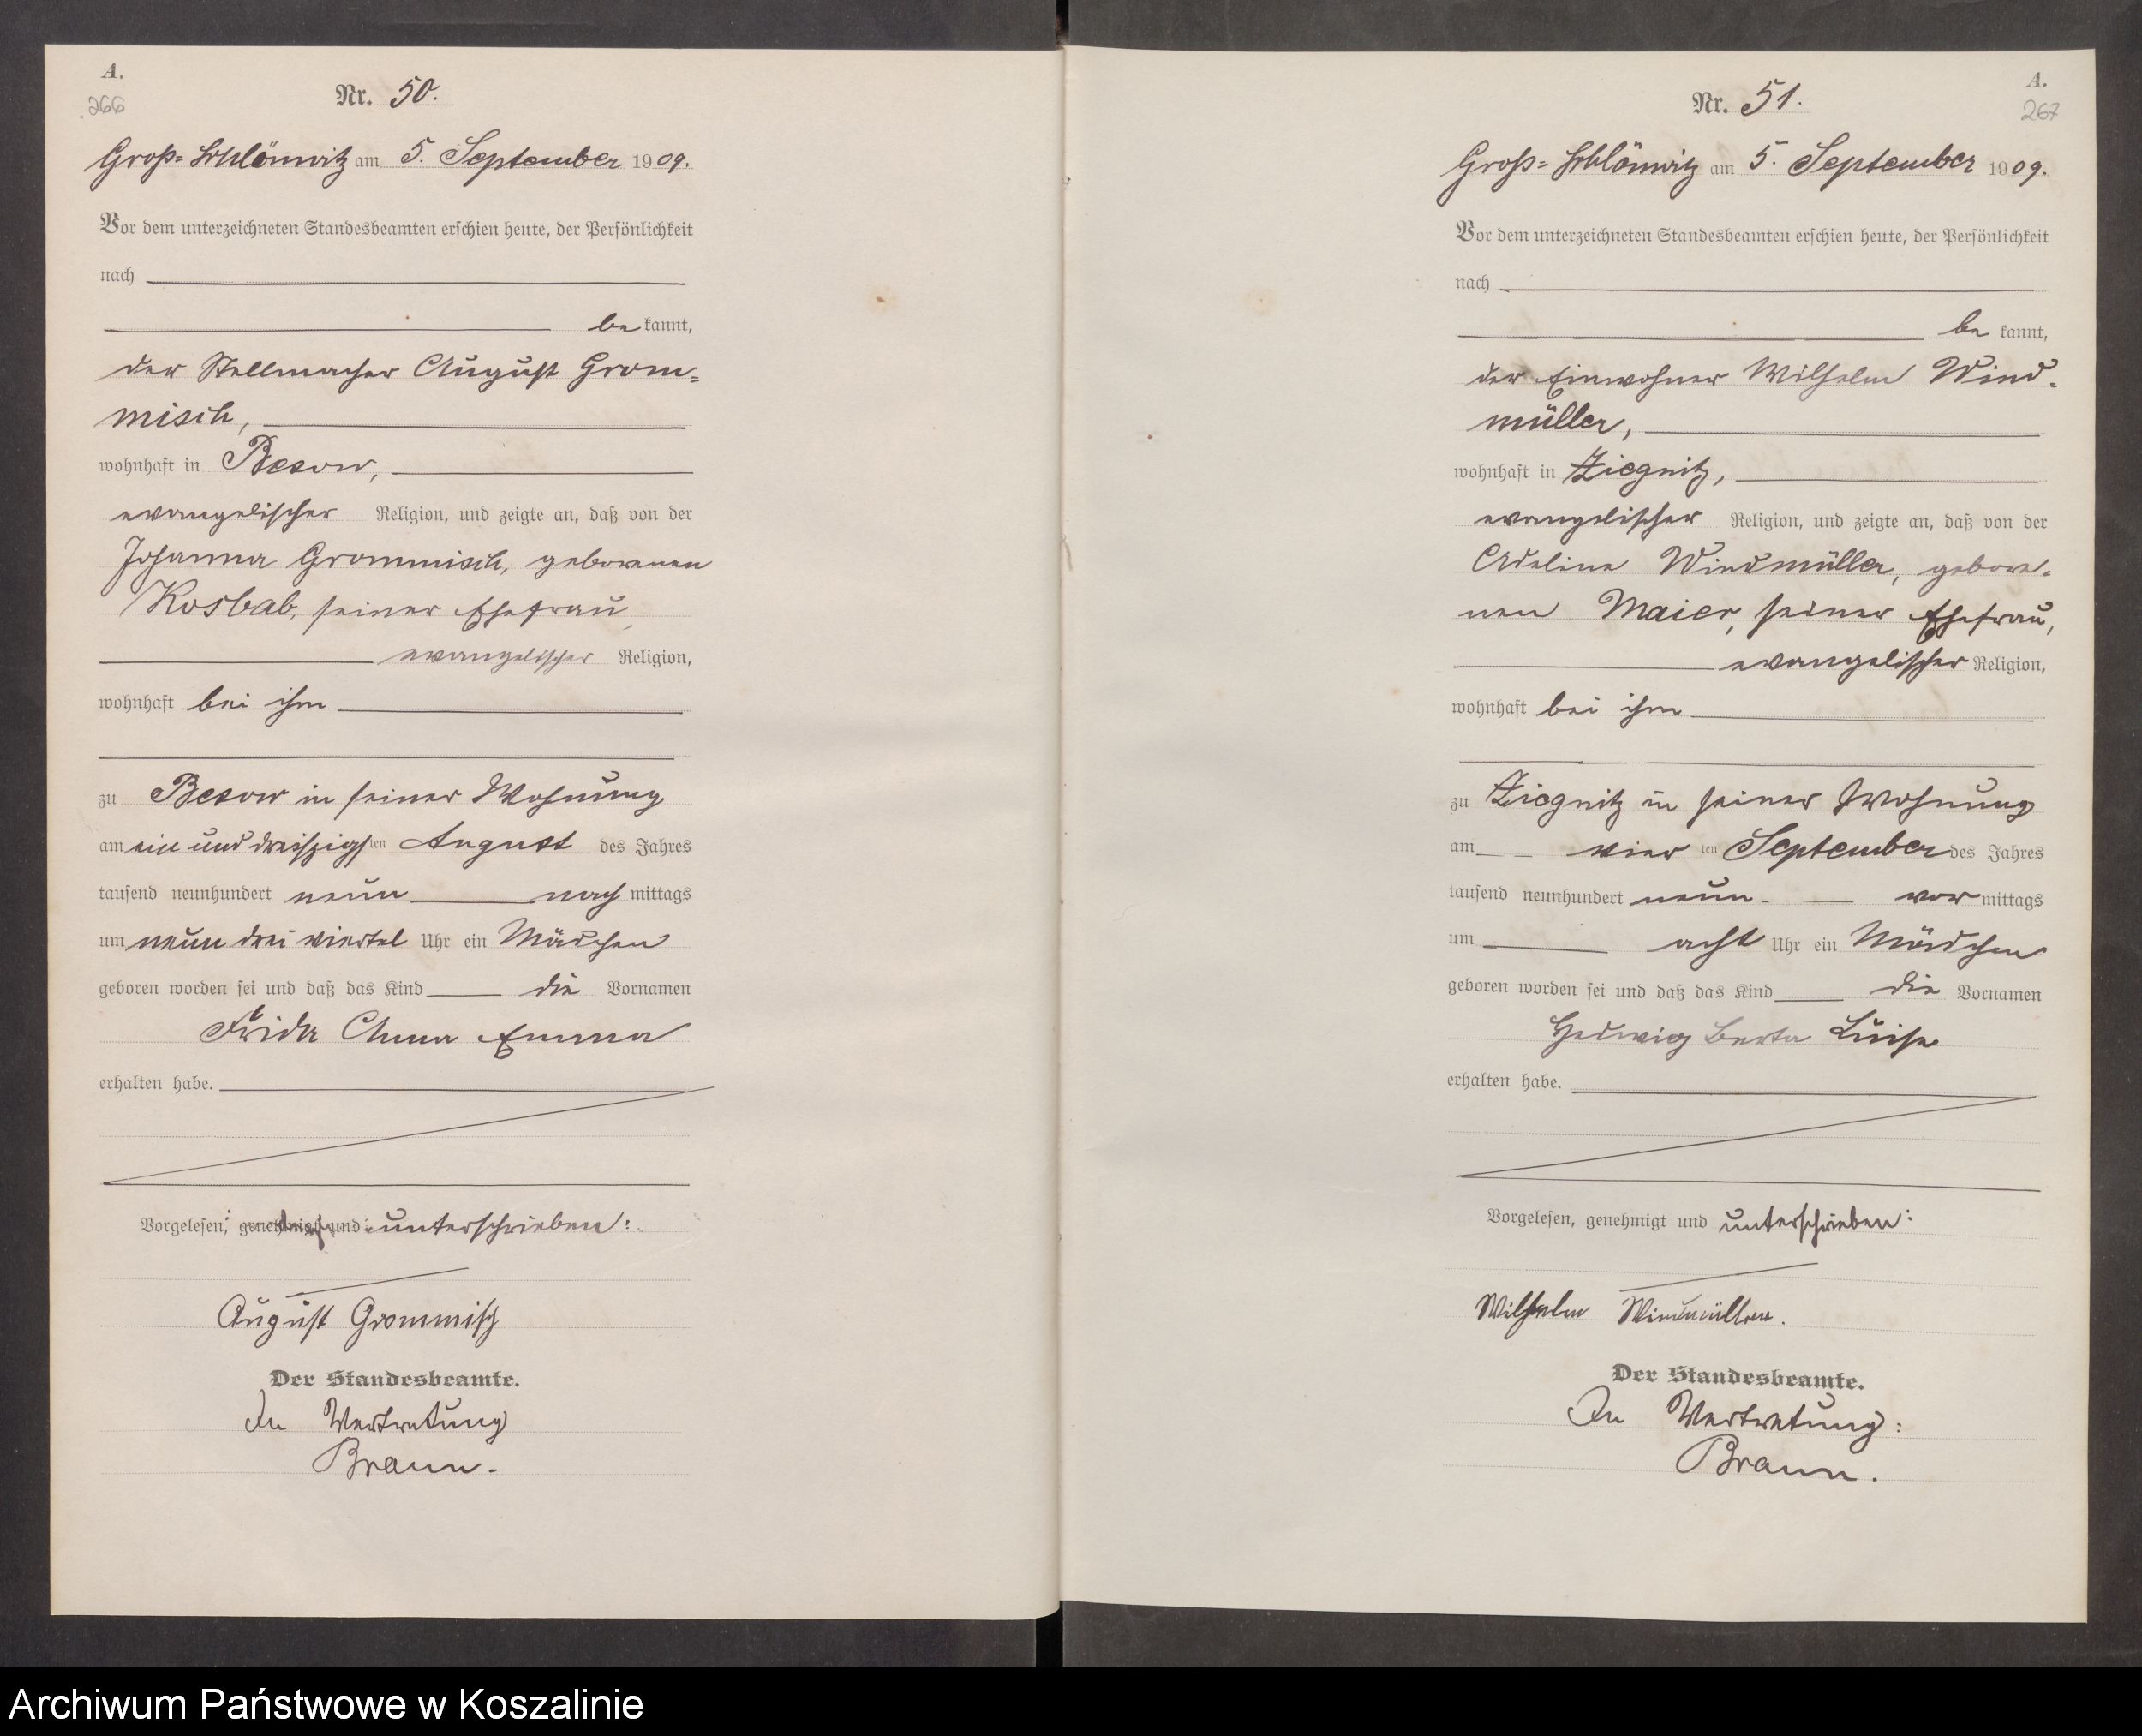 A.
266
Nr. 50.
Groß-Schlönwitz am 5. September 1909.
Vor dem unterzeichneten Standesbeamten erschien heute, der Persönlichkeit
nach
be kannt,
der Stellmacher August Grom=
misch,
wohnhaft in Besow,
evangelischer Religion, und zeigte an, daß von der
Johanna Grommisch, geborenen
Kosbab, seiner Ehefrau,
evangelischer Religion,
wohnhaft bei ihm
zu Besow in seiner Wohnung
am ein und dreiszigsten August des Jahres
tausend neunhundert neun nach mittags
um neun drei viertel Uhr ein Mädchen
geboren worden sei und daß das Kind die Vornamen
Frida Anna Emma
erhalten habe.
Vorgelesen, genehmigt und unterschrieben:
August Grommisch
Der Standesbeamte.
In Vertretung
Braun.
A.
267
Nr. 51.
Groß=Schlönwitz am 5. September 1909.
Vor dem unterzeichneten Standesbeamten erschien heute, der Persönlichkeit
nach
be kannt,
der Einwohner Wilhelm Wind-
müller,
wohnhaft in Ziegnitz,
evangelischer Religion, und zeigte an, daß von der
Adeline Windmüller, gebore-
nen Maier, seiner Ehefrau,
evangelischer Religion,
wohnhaft bei ihm
zu Ziegnitz in seiner Wohnung
am vierten September des Jahres
tausend neunhundert neun vor mittags
um acht Uhr ein Mädchen
geboren worden sei und daß das Kind die Vornamen
Hedwig Berta Luise
erhalten habe.
Vorgelesen, genehmigt und unterschrieben:
Wilhelm Windmüller.
Der Standesbeamte.
In Vertretung:
Braun.
Archiwum Państwowe w Koszalinie